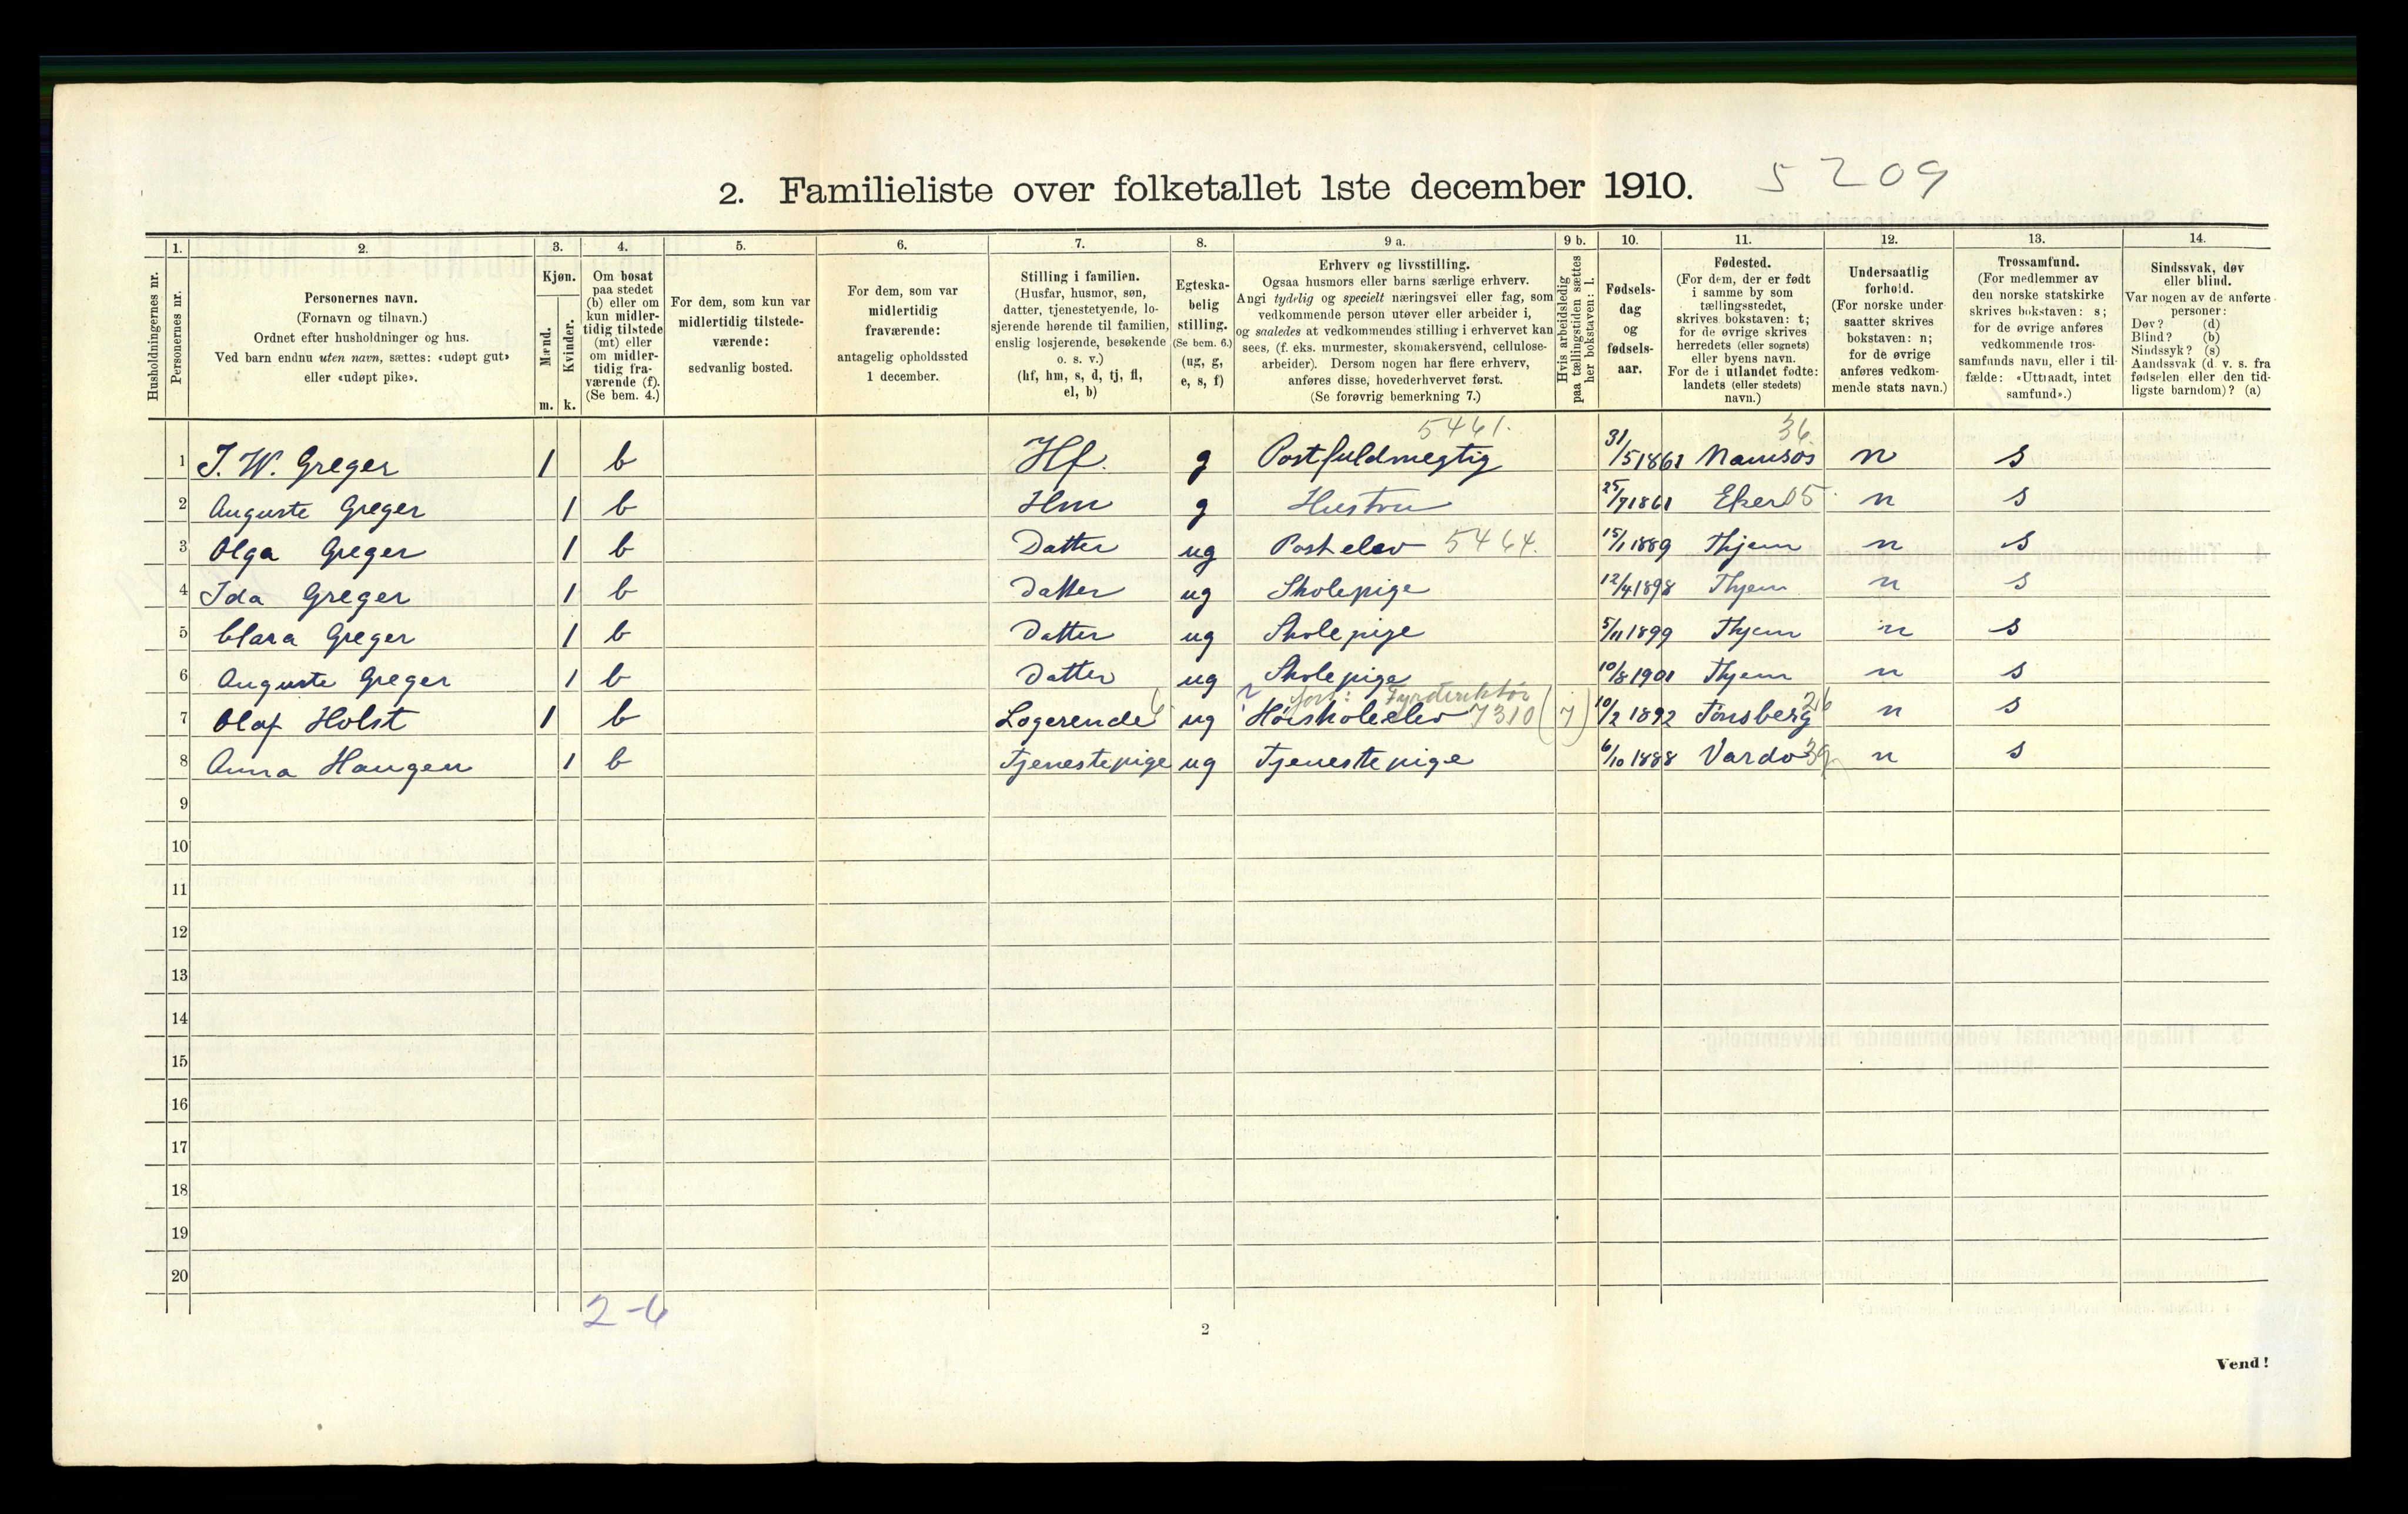 2. Familieliste over folketallet 1ste december 1910. 5209
Husholdningernes nr.
1. Personernes nr.
2. Personernes navn.
(Fornavn og tilnavn.)
Ordnet efter husholdninger og hus.
Ved barn endnu uten navn, sættes: «udøpt gut»
eller «udøpt pike».
3. Kjøn.
Mænd. m.
Kvinder. k.
4. Om bosat
paa stedet
(b) eller om
kun midler-
tidig tilstede
(mt) eller
om midler-
tidig fra-
værende (f).
(Se bem. 4.)
5. For dem, som kun var
midlertidig tilstede-
værende:
sedvanlig bosted.
6. For dem, som var
midlertidig
fraværende:
antagelig opholdssted
1 december.
7. Stilling i familien.
(Husfar, husmor, søn,
datter, tjenestetyende, lo-
sjerende hørende til familien,
enslig losjerende, besøkende
o. s. v.)
(hf, hm, s, d, tj, fl,
el, b)
8. Egteska-
belig
stilling.
(Se bem. 6.)
(ug, g,
e, s, f)
9 a. Erhverv og livsstilling.
Ogsaa husmors eller barns særlige erhverv.
Angi tydelig og specielt næringsvei eller fag, som
vedkommende person utøver eller arbeider i,
og saaledes at vedkommendes stilling i erhvervet kan
sees, (f. eks. murmester, skomakersvend, cellulose-
arbeider). Dersom nogen har flere erhverv,
anføres disse, hovederhvervet først.
(Se forøvrig bemerkning 7.)
9 b. Hvis arbeidsledig
paa tællingstiden sættes
her bokstaven: l.
10. Fødsels-
dag
og
fødsels-
aar.
11. Fødested.
(For dem, der er født
i samme by som
tællingsstedet,
skrives bokstaven: t;
for de øvrige skrives
herredets (eller sognets)
eller byens navn.
For de i utlandet fødte:
landets (eller stedets)
navn.)
12. Undersaatlig
forhold.
(For norske under-
saatter skrives
bokstaven: n;
for de øvrige
anføres vedkom-
mende stats navn.)
13. Trossamfund.
(For medlemmer av
den norske statskirke
skrives bokstaven: s;
for de øvrige anføres
vedkommende tros-
samfunds navn, eller i til-
fælde: «Uttraadt, intet
samfund».)
14. Sindssvak, døv
eller blind.
Var nogen av de anførte
personer:
Døv? (d)
Blind? (b)
Sindssyk? (s)
Aandssvak (d. v. s. fra
fødselen eller den tid-
ligste barndom)? (a)
5461. 36
1 J. W. Greger 1 b Hf. g Postfuldmegtig 31/5 1861 Namsos n s
2 Auguste Greger 1 b Hm g Hustru 25/7 1861 Eker 05 n s
3 Olga Greger 1 b Datter ug Postelev 5464. 15/1 1889 Thjem n s
4 Ida Greger 1 b Datter ug Skolepige 12/4 1898 Thjem n s
5 Clara Greger 1 b Datter ug Skolepige 5/11 1899 Thjem n s
6 Auguste Greger 1 b Datter ug Skolepige 10/8 1901 Thjem n s
fors: Fyrdirektør
7 Olaf Holst 1 b Logerende ug Høiskoleelev 7310 (7) 10/2 1892 Tønsberg n s
8 Anna Haugen 1 b Tjenestepige ug Tjenestepige 6/10 1888 Vardø 39 n s
9
10
11
12
13
14
15
16
17
18
19
20
2-6
2
Vend!